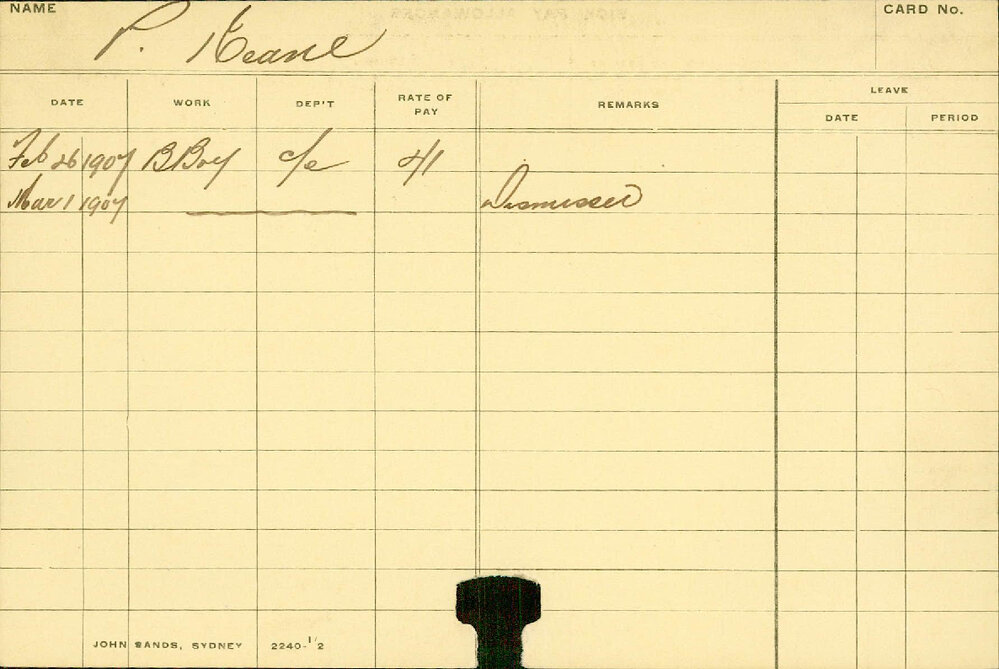 NAME P. Keane CARD No.
DATE WORK DEP'T RATE OF PAY REMARKS LEAVE
DATE PERIOD
Feb 26 1907 B Boy c/e 4/1
Mar 1 1907 Dismissed
JOHN SANDS, SYDNEY 2240-1/2